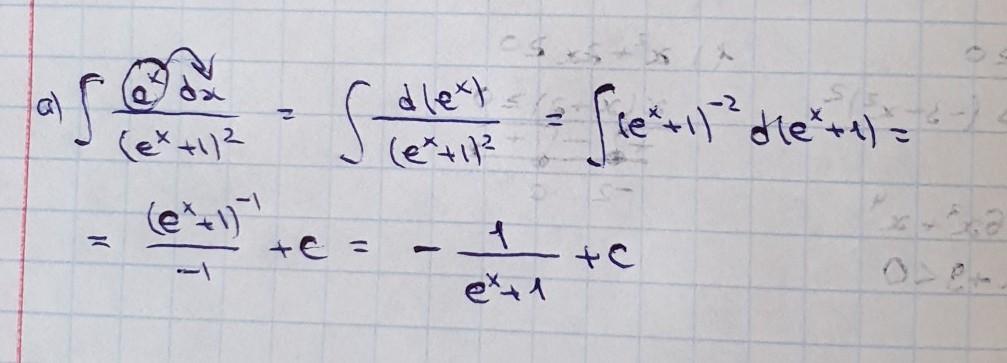 a) ∫ eˣ dx / (eˣ+1)² = ∫ d(eˣ) / (eˣ+1)² = ∫ (eˣ+1)⁻² d(eˣ+1) =
= (eˣ+1)⁻¹ / -1 + C = - 1 / (eˣ+1) + C